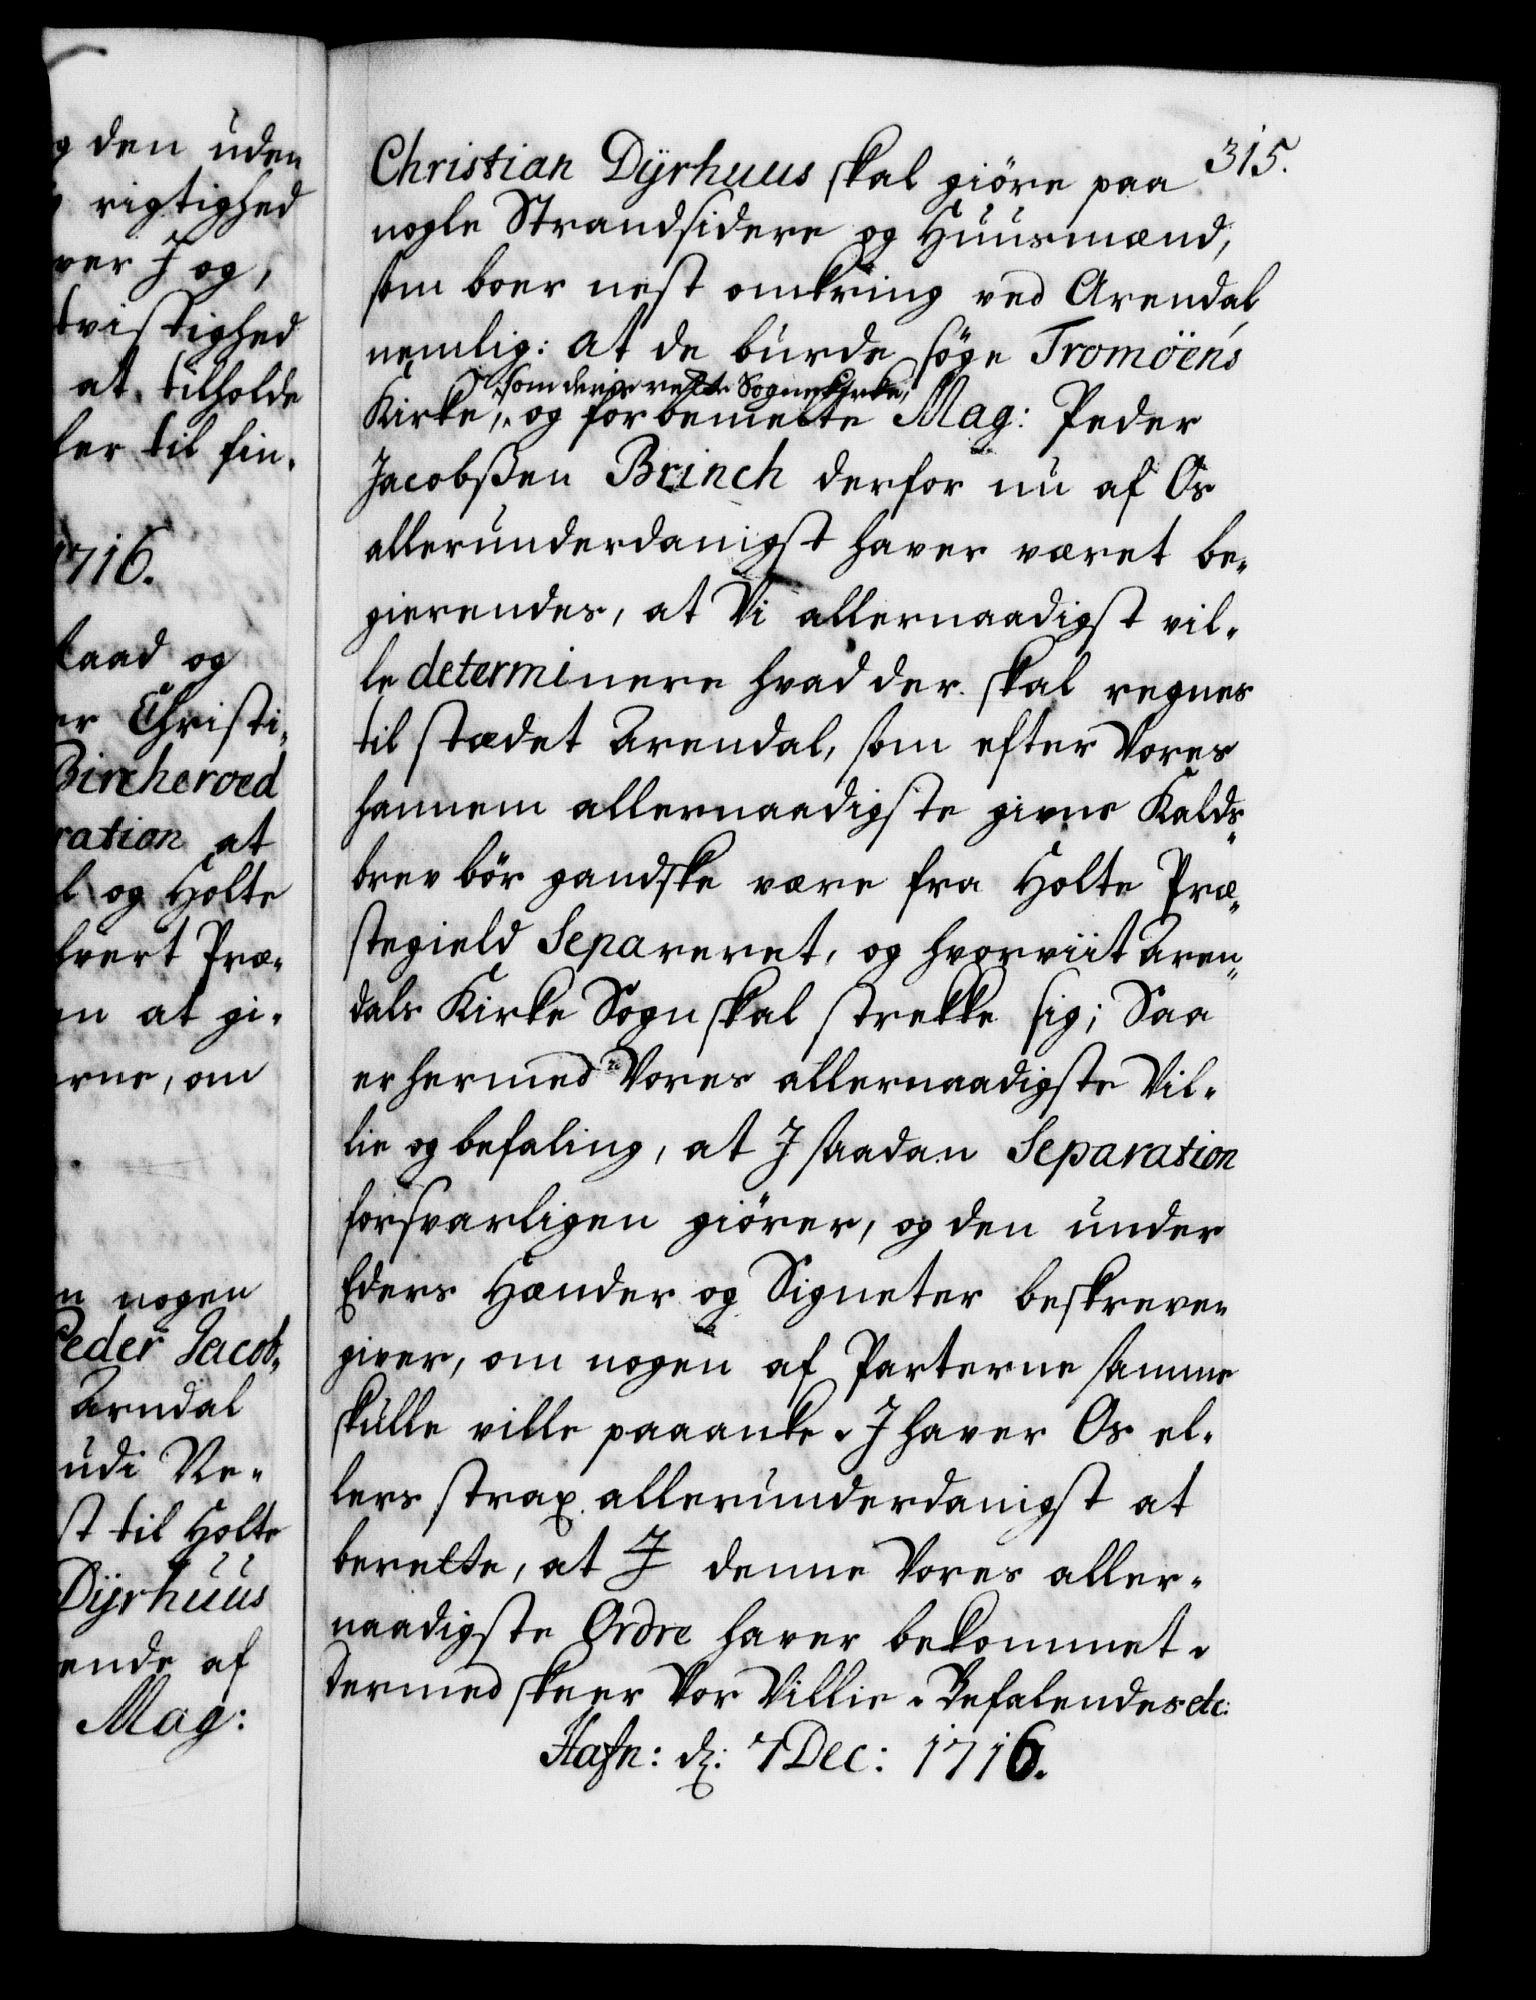 g den uden
rigtighed
ver J og,
tvistighed
at tilholde
ler til fin-
1716.
raad og
er Christi-
Bircheroed
ration at
l og Holte
hvert Præ-
en at gi-
erne, om
n nogen
Peder Jacob-
Arndal
udi Ne-
st til Holte
Dÿrhuus
ende af
Mag:
315.
Christian Dÿrhuus skal giöre paa
nogle Strandsidere og Huusmænd,
som boer nest omkring ved Arendal,
nemlig: at de burde söge Tromöens
som deris rette Sognekirke,
Kirke, og forbemelte Mag: Peder
Jacobßen Brinch derfor nu af Os
allerunderdanigst haver været be-
gierendes, at Vi allernaadigst vil-
le determinere hvad der skal regnes
til stædet Arendal, som efter Vores
hannem allernaadigste givne Kalds-
brev bör gandske være fra Holte Præ-
stegield Separeret, og hvorviit Aren-
dals Kirke Sogn skal strekke sig; Saa
er hermed Vores allernaadigste Vil-
lie og befaling, at J saadan Separation
forsvarligen giörer, og den under
Eders Hænder og Signeter beskreven
giver, om nogen af Parterne samme
skulle ville paaanke. J haver Os el-
lers strax allerunderdanigst at
berette, at J denne Vores aller-
naadigste Ordre haver bekommet.
Dermed skeer Vor Villie. Befalendes etc:
Hafn: d: 7 Dec: 1716.